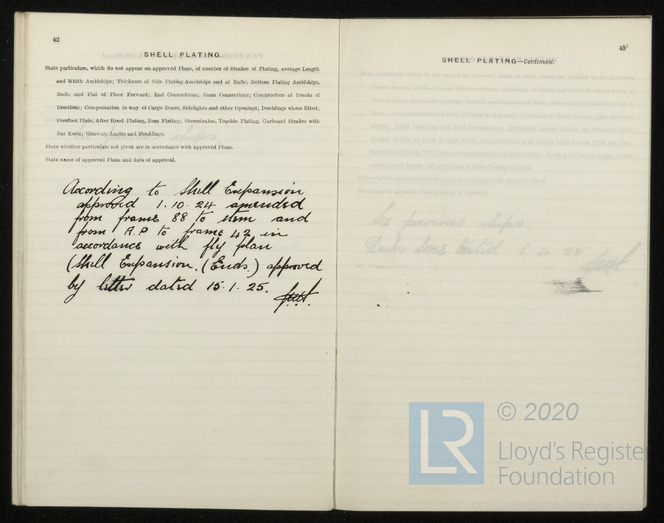 42
SHELL PLATING.
State particulars, which do not appear on approved Plans, of number of Strakes of Plating, average Length
and Width Amidships; Thickness of Side Plating Amidships and at Ends; Bottom Plating Amidships,
Ends, and Flat of Floor Forward; End Connections; Seam Connections; Construction at Breaks of
Erections; Compensation in way of Cargo Doors, Sidelights and other Openings; Doublings where fitted;
Forefoot Plate, After Hood Plating, Boss Plating; Sheerstrakes, Topside Plating, Garboard Strakes with
Bar Keels; Gunwale Angles and Mouldings.
State whether particulars not given are in accordance with approved Plans.
State name of approved Plans and date of approval.
According to Shell Expansion
approved 1.10.24 amended
from frame 88 to stem and
from A.P to frame 42 in
accordance with fly plan
(Shell Expansion. (Ends.) approved
by letter dated 15.1.25.
43
SHELL PLATING—Continued.
© 2020
LR
Lloyd's Register
Foundation